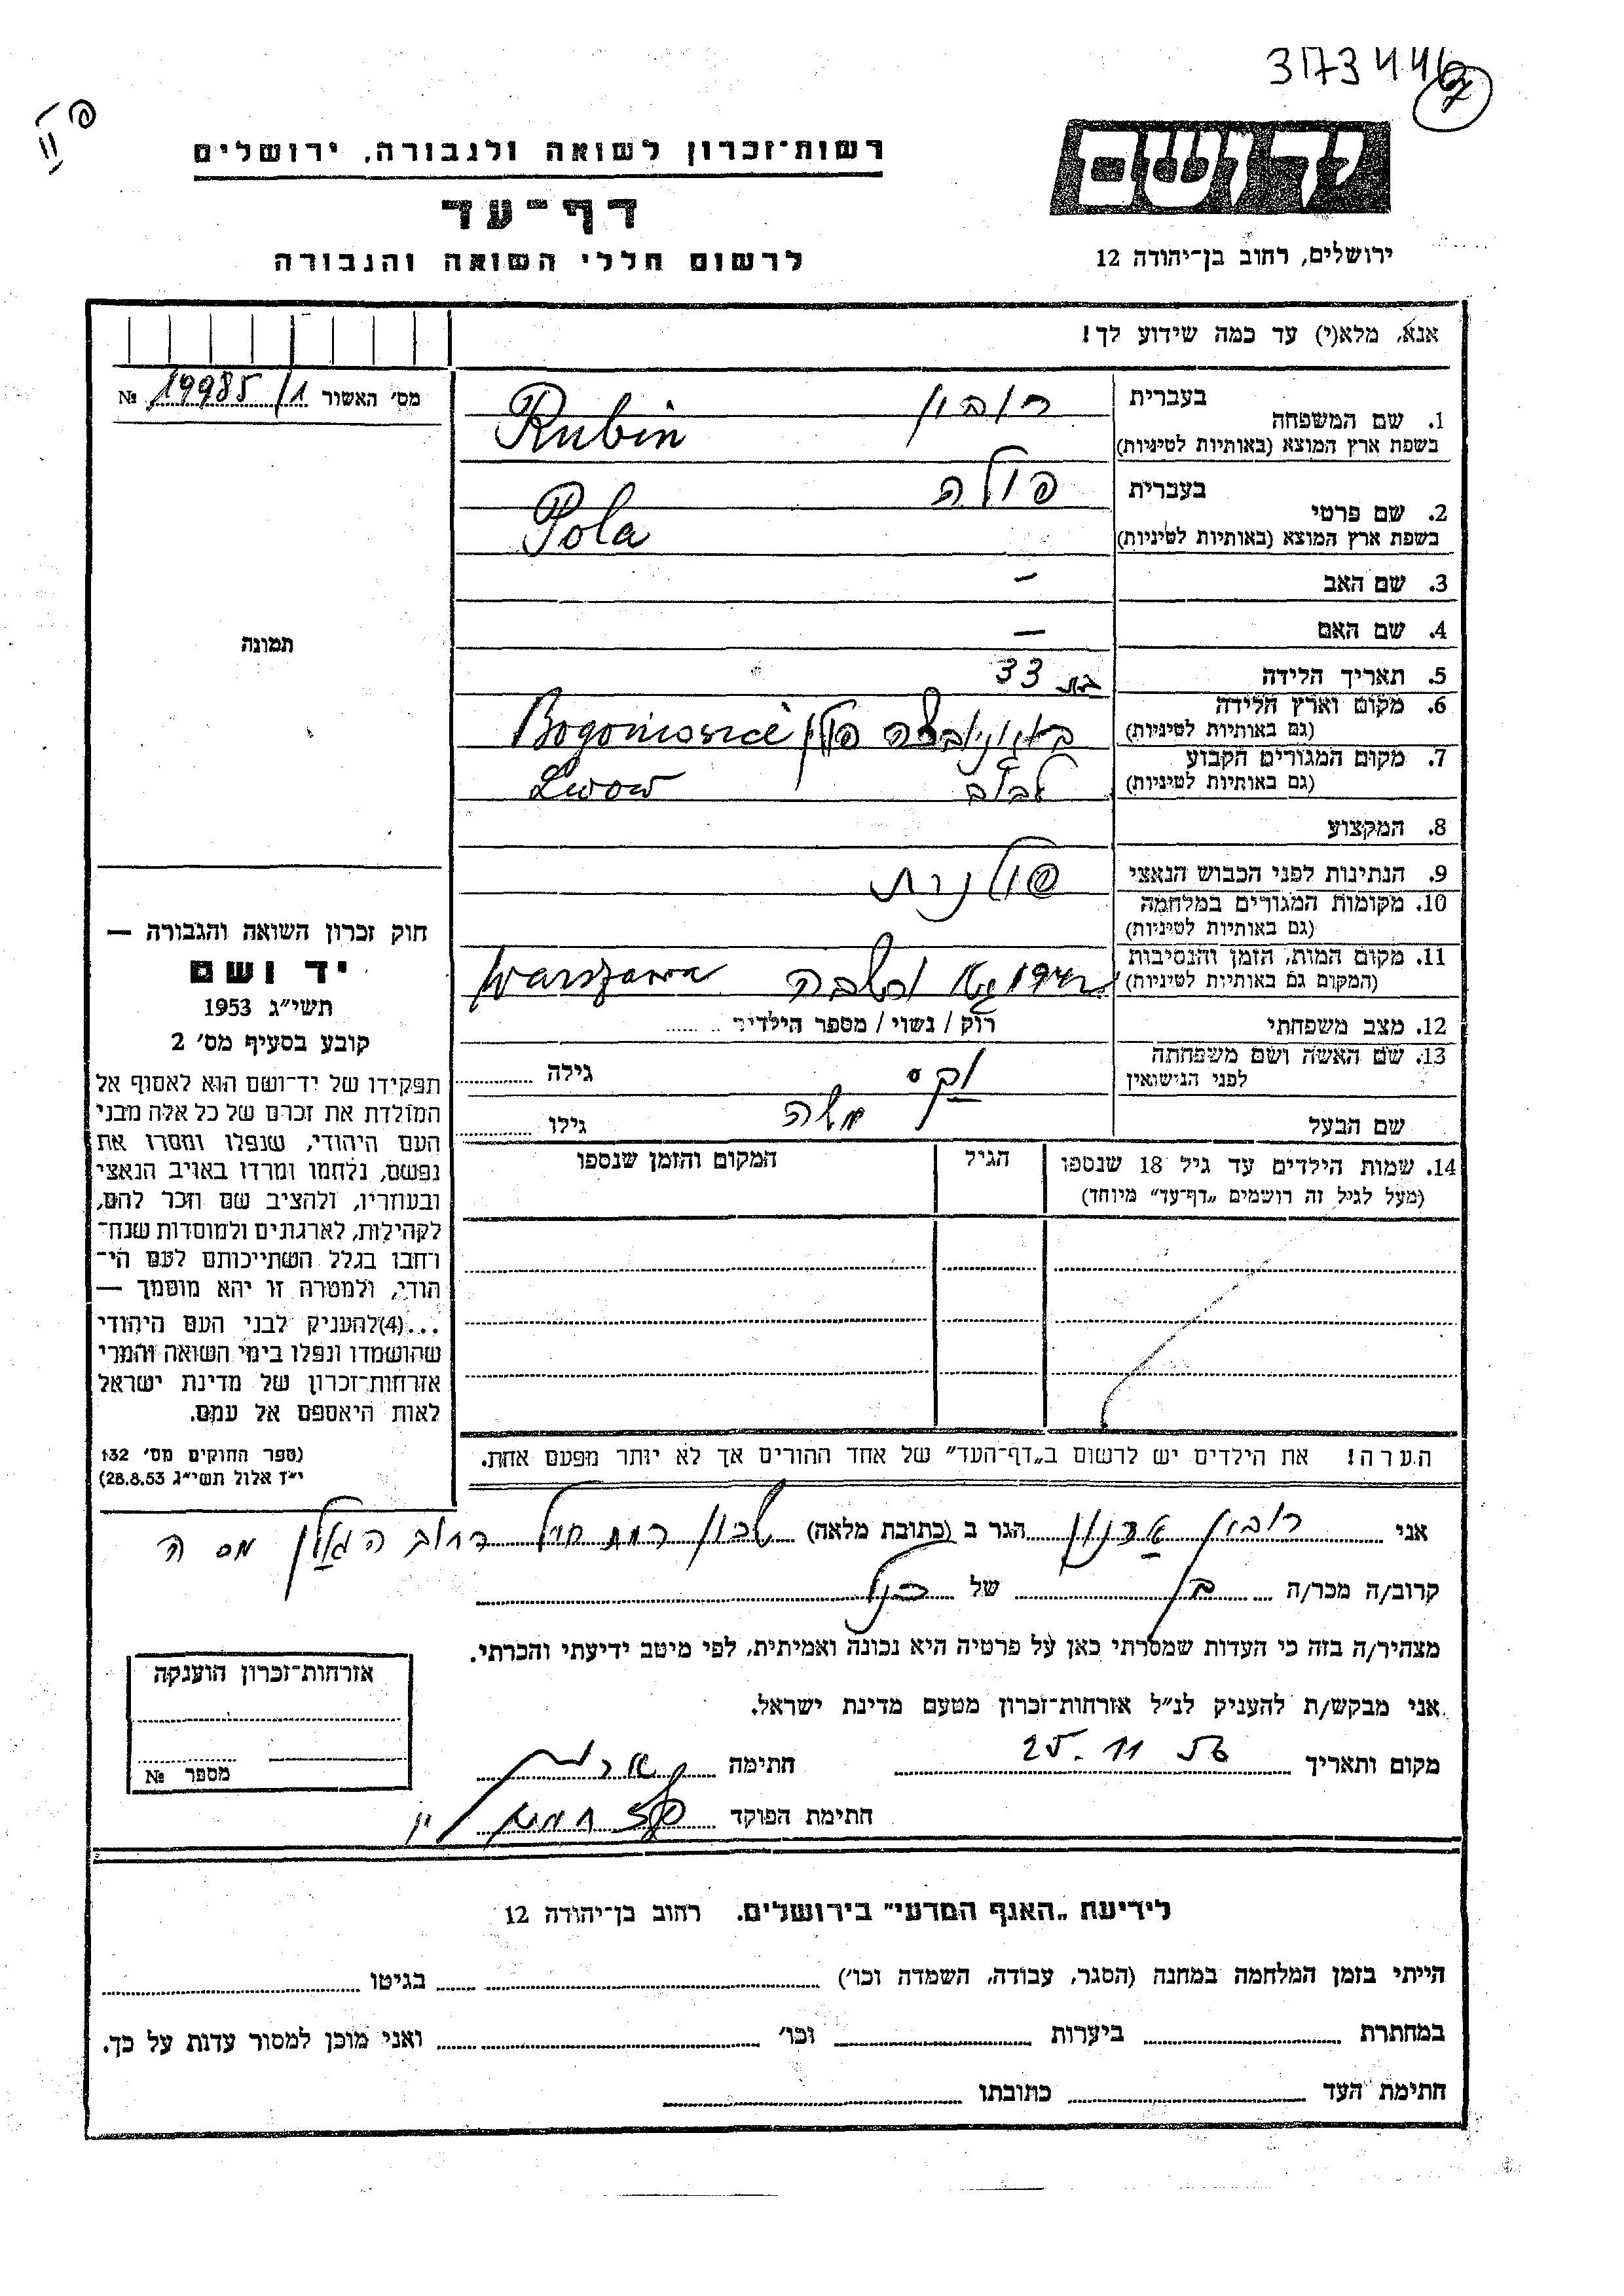 3173446
67
פ
II
יד ושם
ירושלים, רחוב בן־יהודה 12
רשות־זכרון לשואה ולגבורה, ירושלים
דף־עד
לרשום חללי השואה והגבורה
אנא, מלא(י) עד כמה שידוע לך!
מס׳ האשור 19985/1 №
תמונה
1. שם המשפחה
בעברית רובין
בשפת ארץ המוצא (באותיות לטיניות) Rubin
2. שם פרטי
בעברית פולה
בשפת ארץ המוצא (באותיות לטיניות) Pola
3. שם האב —
4. שם האם —
5. תאריך הלידה בת 33
6. מקום וארץ הלידה
(גם באותיות לטיניות) פולין
7. מקום המגורים הקבוע
(גם באותיות לטיניות) לבוב Lwow
8. המקצוע
9. הנתינות לפני הכבוש הנאצי פולנית
10. מקומות המגורים במלחמה
(גם באותיות לטיניות)
11. מקום המות, הזמן והנסיבות
(המקום גם באותיות לטיניות) ורשבה Warszawa
12. מצב משפחתי רוק / נשוי / מספר הילדים
13. שם האשה ושם משפחתה
לפני הנישואין וקס גילה
שם הבעל משה גילו
14. שמות הילדים עד גיל 18 שנספו
(מעל לגיל זה רושמים „דף־עד” מיוחד)
הגיל
המקום והזמן שנספו
הערה! את הילדים יש לרשום ב„דף־העד” של אחד ההורים אך לא יותר מפעם אחת.
חוק זכרון השואה והגבורה —
יד ושם
תשי״ג 1953
קובע בסעיף מס׳ 2
תפקידו של יד־ושם הוא לאסוף אל
המולדת את זכרם של כל אלה מבני
העם היהודי, שנפלו ומסרו את
נפשם, נלחמו ומרדו באויב הנאצי
ובעוזריו, ולהציב שם וזכר להם,
לקהילות, לארגונים ולמוסדות שנח־
רחבו בגלל השתייכותם לעם הי־
הודי, ולמטרה זו יהא מוסמך —
...(4)להעניק לבני העם היהודי
שהושמדו ונפלו בימי השואה והמרי
אזרחות־זכרון של מדינת ישראל
לאות היאספם אל עמם.
(ספר החוקים מס׳ 132
י״ז אלול תשי״ג 28.8.53)
אני רובין אהרון הגר ב (כתובת מלאה) שכון רמת חיל רחוב הגולן מס ה
קרוב/ה מכר/ה בן של הנ״ל
מצהיר/ה בזה כי העדות שמסרתי כאן על פרטיה היא נכונה ואמיתית, לפי מיטב ידיעתי והכרתי.
אני מבקש/ת להעניק לנ״ל אזרחות־זכרון מטעם מדינת ישראל.
מקום ותאריך 25.11.56 חתימה
חתימת הפוקד
אזרחות־זכרון הוענקה
מספר №
לידיעת „האגף המדעי” בירושלים. רחוב בן־יהודה 12
הייתי בזמן המלחמה במחנה (הסגר, עבודה, השמדה וכו׳) בגיטו
במחתרת ביערות וכו׳ ואני מוכן למסור עדות על כך.
חתימת העד כתובתו